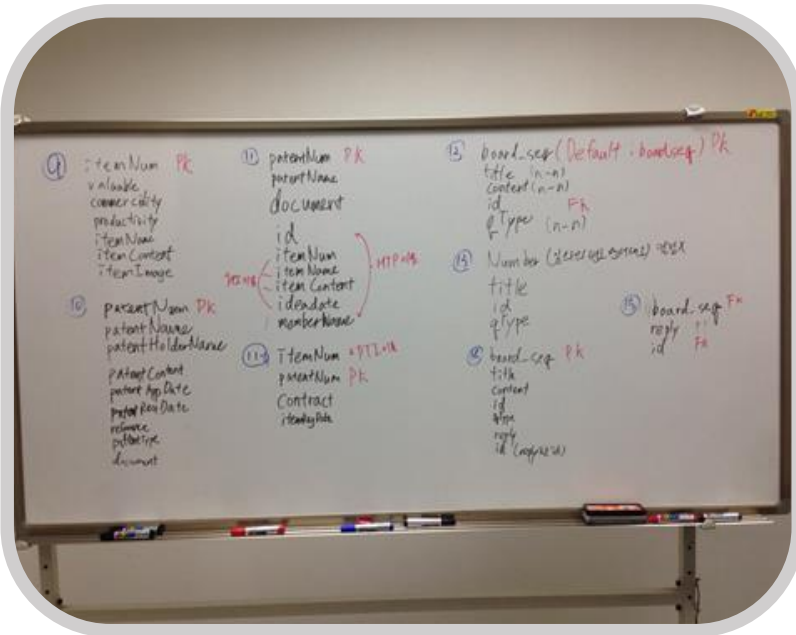 ⑨ itemNum PK
valuable
commerciality
productivity
itemName
itemContent
itemImage
⑩ patentNum PK
patentName
patentHolderName
patentContent
patent App Date
patent Reg Date
patentType
document
⑪ patentNum PK
patentName
document
id
itemNum
itemName
item Content
ideadate
memberName
itemNum
patentNum PK
Contract
itemRegDate
⑫ board_seq (Default : boardseq) PK
title (n-n)
content (n-n)
id FK
qType (n-n)
Number
title
id
qType
board_seq PK
title
content
id
qType
reply
id
⑮ board_seq FK
reply
id FK